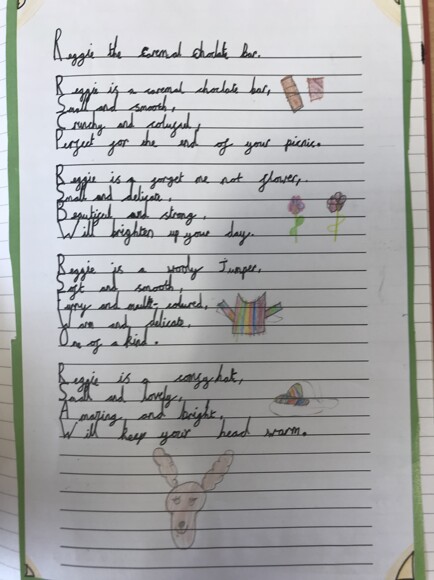 Reggie the caremal choclate bar.
Reggie is a caremal choclate bar,
Small and smooth,
Crunchy and
Perfect for the end of your picnic.
Reggie is a forget me not flower,
Small and delicate,
Beautifull and strong,
Will brighten up your day.
Reggie is a wooly Jumper,
Soft and smooth,
Furry and multi-coloured,
Warm and delicate,
One of a kind.
Reggie is a cosy hat,
Small and lovely,
Amazing and bright,
Will keep your head warm.